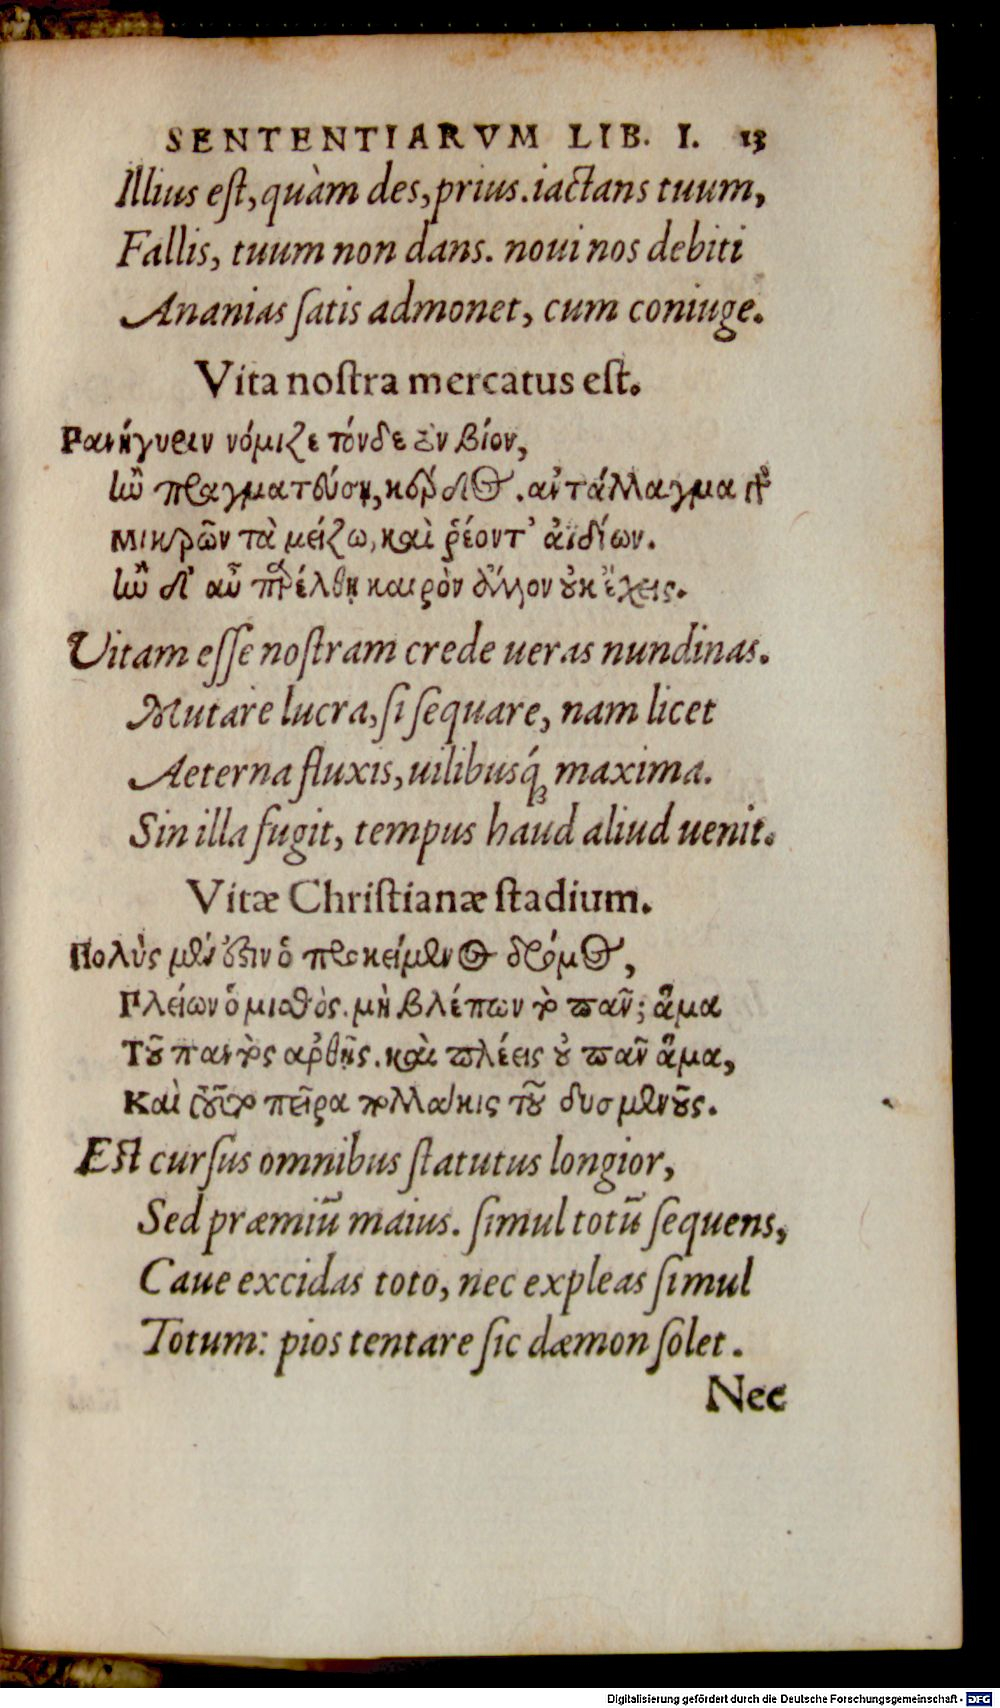 SENTENTIARVM LIB. I. 13
Illius est, quàm des, prius. iactans tuum,
Fallis, tuum non dans. noui nos debiti
Ananias satis admonet, cum coniuge.
Vita nostra mercatus est.
Πανήγυριν νόμιζε τόνδε τὸν βίον,
ἐὰν πραγματεύσῃ, κέρδος. ἀντάλλαγμα γὰρ
μικρῶν τὰ μείζω, καὶ ῥέοντ' ἀϊδίων.
ἐὰν δ' αὖ παρέλθῃ καιρὸν ἄλλον οὐκ ἔχεις.
Vitam esse nostram crede ueras nundinas.
Mutare lucra, si sequare, nam licet
Aeterna fluxis, uilibusq́; maxima.
Sin illa fugit, tempus haud aliud uenit.
Vitæ Christianæ stadium.
Πολύς μέν ἐστιν ὁ προκείμενος δρόμος,
Πλείων ὁ μισθός. μὴ βλέπων τὸ πᾶν; ἅμα
Τοῦ παντὸς ἀρθῇς. καὶ πλέεις οὐ πᾶν ἅμα,
Καὶ τοῦτο πεῖρα πολλάκις τοῦ δυσμενοῦς.
Est cursus omnibus statutus longior,
Sed præmiũ maius. simul totũ sequens,
Caue excidas toto, nec expleas simul
Totum: pios tentare sic dæmon solet.
Nec
Digitalisierung gefördert durch die Deutsche Forschungsgemeinschaft - DFG